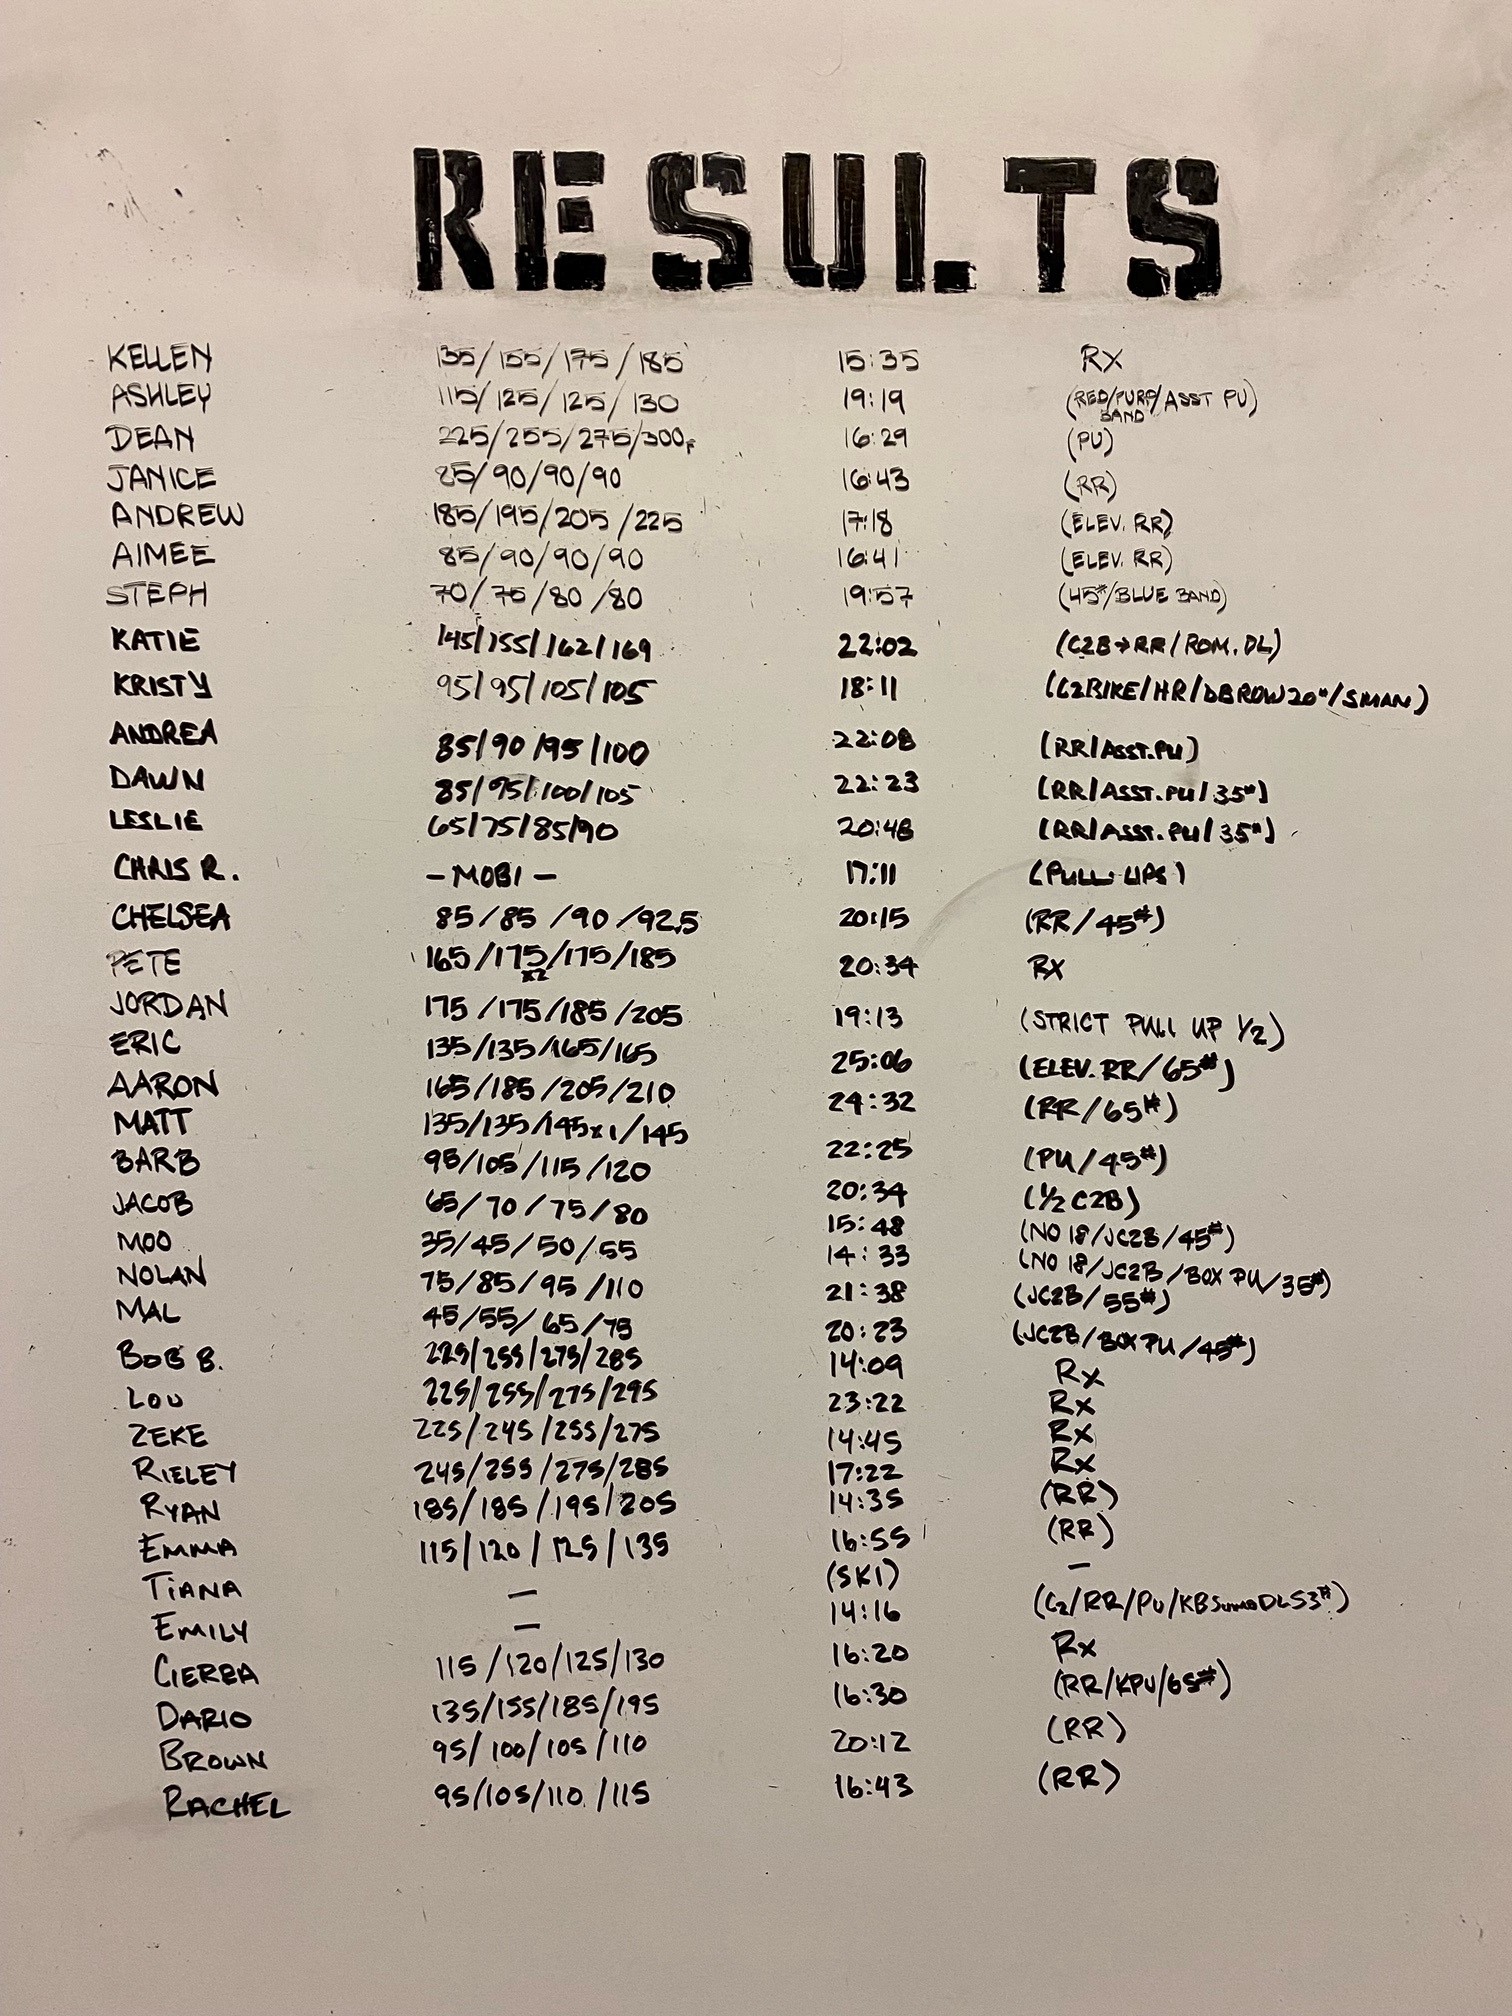 RESULTS
KELLEN 135/155/175/185 15:35 RX
ASHLEY 115/125/125/130 19:19 (RED/PURP/ASST PU)
BAND
DEAN 225/255/275/300F 16:29 (PU)
JANICE 85/90/90/90 16:43 (RR)
ANDREW 185/195/205/225 17:18 (ELEV. RR)
AIMEE 85/90/90/90 16:41 (ELEV. RR)
STEPH 70/75/80/80 19:57 (45#/BLUE BAND)
KATIE 145/155/162/169 22:02 (C2B→RR/ROM. DL)
KRISTY 95/95/105/105 18:11 (C2BIKE/HR/DBROW20#/SMAN)
ANDREA 85/90/95/100 22:08 (RR/ASST.PU)
DAWN 85/95/100/105 22:23 (RR/ASST.PU/35#)
LESLIE 65/75/85/90 20:48 (RR/ASST.PU/35#)
CHRIS R. - MOBI - 17:11 (PULL UPS)
CHELSEA 85/85/90/92.5 20:15 (RR/45#)
PETE 165/175/175/185 20:34 RX
x2
JORDAN 175/175/185/205 19:13 (STRICT PULL UP 1/2)
ERIC 135/135/165/165 25:06 (ELEV. RR/65#)
AARON 165/185/205/210 24:32 (RR/65#)
MATT 135/135/145x1/145 22:25 (PU/45#)
BARB 95/105/115/120 20:34 (1/2 C2B)
JACOB 65/70/75/80 15:48 (NO 18/JC2B/45#)
MOO 35/45/50/55 14:33 (NO 18/JC2B/BOX PU/35#)
NOLAN 75/85/95/110 21:38 (JC2B/55#)
MAL 45/55/65/75 20:23 (JC2B/BOX PU/45#)
BOB B. 225/255/275/285 14:09 Rx
LOU 225/255/275/295 23:22 Rx
ZEKE 225/245/255/275 14:45 Rx
RIELEY 245/255/275/285 17:22 Rx
RYAN 185/185/195/205 14:35 (RR)
EMMA 115/120/125/135 16:55 (RR)
TIANA — (SKI) —
EMILY — 14:16 (C2/RR/PU/KBSUMODL53#)
CIERRA 115/120/125/130 16:20 Rx
DARIO 135/155/185/195 16:30 (RR/KPU/65#)
BROWN 95/100/105/110 20:12 (RR)
RACHEL 95/105/110/115 16:43 (RR)